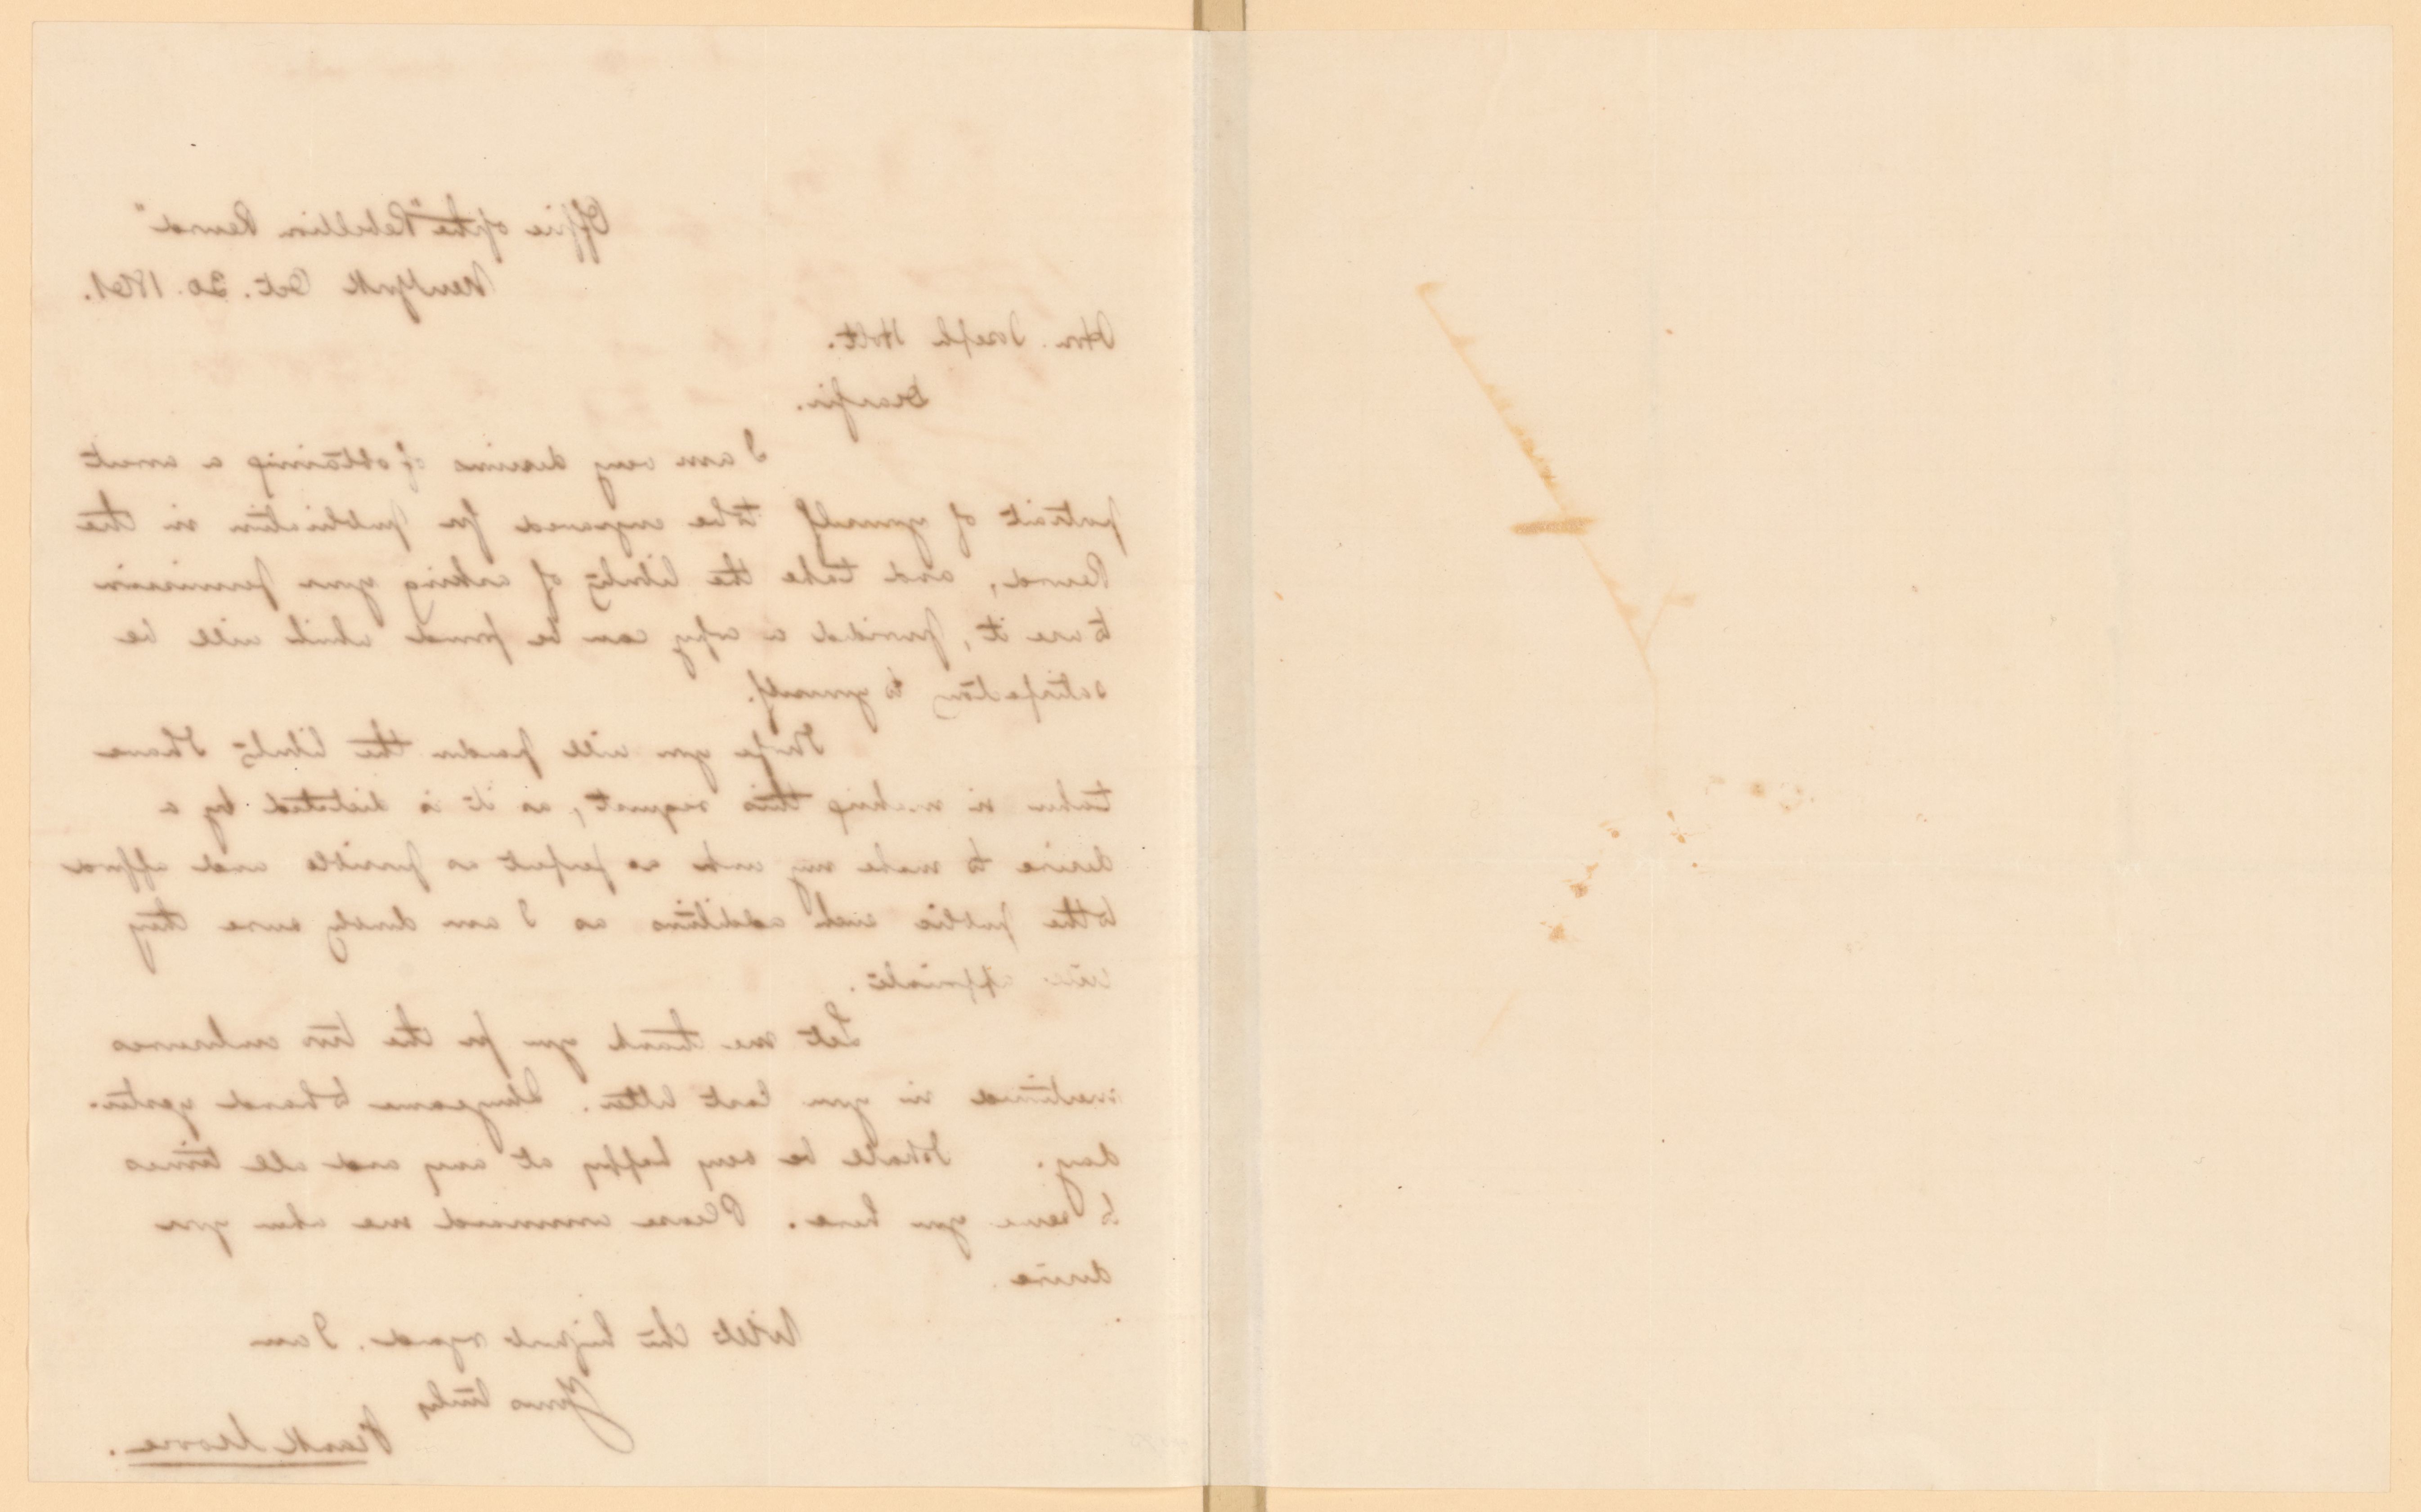 Office of the "Rebellion Record"
New York Oct. 20. 1861.
Hon. Joseph Holt.
Dear Sir.
I am very desirous of obtaining a correct
portrait of yourself to be engraved for publication in the
Record, and take the liberty of asking your permission
to use it, provided a copy can be found which will be
satisfactory to yourself.
I hope you will pardon the liberty I have
taken in making this request, as it is dictated by a
desire to make my work as perfect as possible and afford
to the public such additions as I am doubly sure they
will appreciate.
Let me thank you for the two
mentioned in your last letter. They came to hand yester-
day. I shall be very happy at any and all times
to serve you here. Please command me when you
desire.
With the highest regard. I am
Yours truly
Frank Moore.